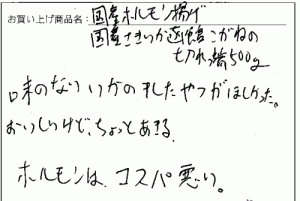 お買い上げ商品名：国産ホルモン揚げ
国産さきいか浜焼き こがねの
切れっ端500g
味のないいかのましたやつがほしかった。
おいしいけど、ちょっとあきる。
ホルモンは、コスパ悪い。